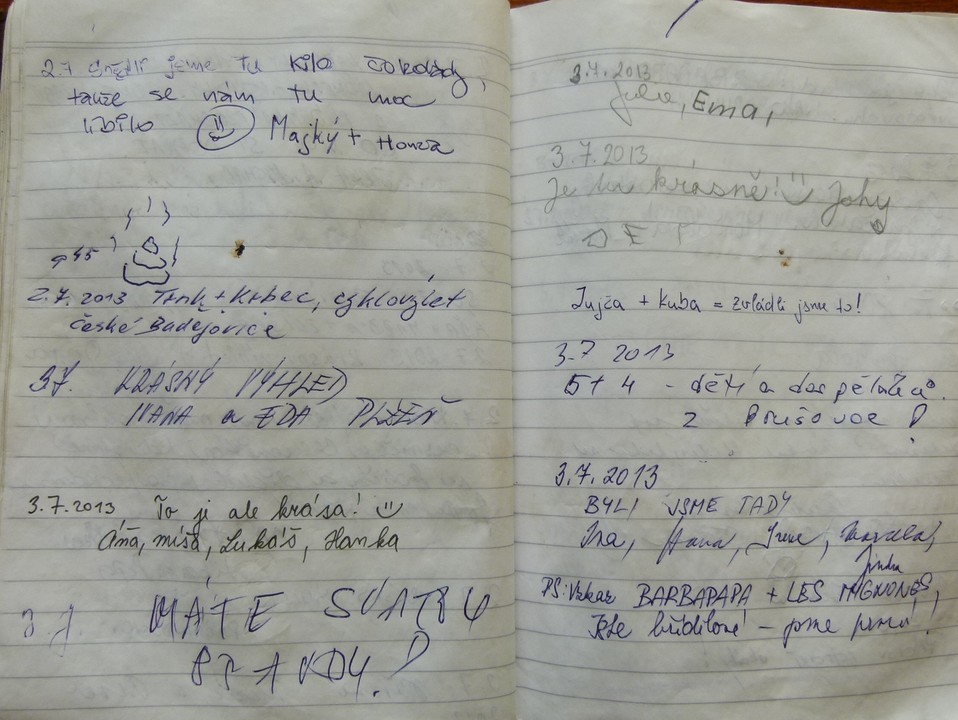 2.7 Snědli jsme tu kilo čokolády,
takže se nám tu moc
líbilo Majký + Honza
2.7.2013 Trnk + Krbec, cyklovýlet
České Budějovice
3.7. KRÁSNÝ VÝHLED
IVANA a EDA PLZEŇ
3.7.2013 To je ale krása!
Áňa, míša, Lukáš, Hanka
3.7. MÁTE SVATOU
PRAVDU!
3.7.2013
Julie, Ema,
3.7.2013
Je tu krásně! Johy
Jujča + Kuba = zvládli jsme to!
3.7 2013
5 + 4 - dětí a dospěláků.
z Prušovac!
3.7.2013
BYLI JSME TADY
Ina, Hana, Irena,
Jindra
PS: Vzkaz BARBAPAPA + LES MIGNONES,
Jste - jsme první!